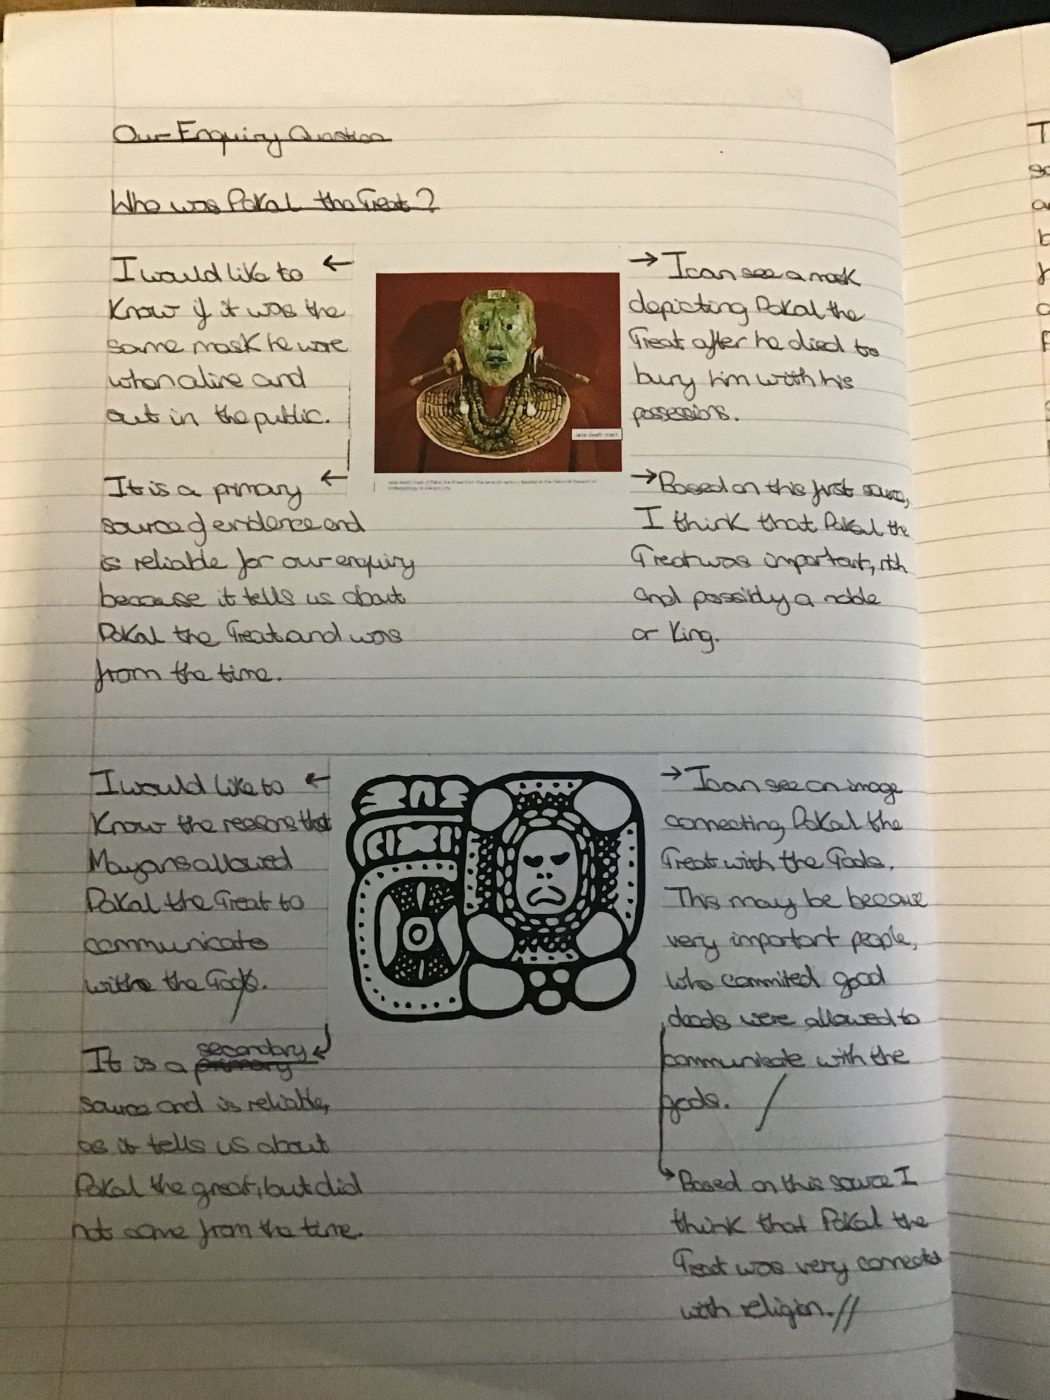 Our Enquiry Question
Who was Pakal the Great?
I would like to
Know if it was the
same mask he wore
when alive and
out in the public.
I can see a mask
depicting Pakal the
Great after he died to
bury him with his
possessions.
jade death mask
It is a primary
source of evidence and
is reliable for our enquiry
because it tells us about
Pakal the Great and was
from the time.
Based on this first source,
I think that Pakal the
Great was important, rich
and possibly a noble
or King.
I would like to
Know the reasons that
Mayans allowed
Pakal the Great to
communicate
with the Gods.
I can see an image
connecting Pakal the
Great with the Gods.
This may be because
very important people,
who commited good
deeds were allowed to
communicate with the
gods.
It is a secondary
source and is reliable,
as it tells us about
Pakal the great, but did
not come from the time.
Based on this source I
think that Pakal the
Great was very connected
with religion.//